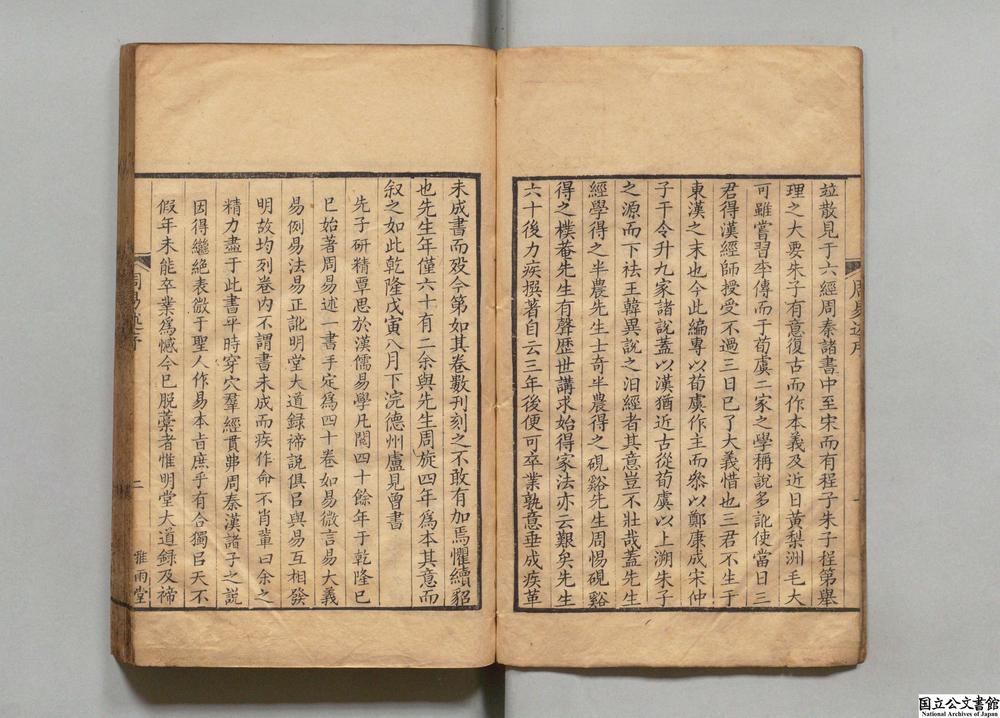 竝散見于六經周秦諸書中至宋而有程子朱子程第舉
理之大要朱子有意復古而作本義及近日黃梨洲毛大
可雖嘗習李傳而于荀虞二家之學稱說多訛使當日三
君得漢經師授受不過三日已了大義惜也三君不生于
東漢之末也今此編專以荀虞作主而叅以鄭康成宋仲
子干令升九家諸說蓋以漢猶近古從荀虞以上溯朱子
之源而下祛王韓異說之汨經者其意豈不壯哉蓋先生
經學得之半農先生士奇半農得之硯谿先生周惕硯谿
得之樸菴先生有聲歷世講求始得家法亦云艱矣先生
六十後力疾撰著自云三年後便可卒業孰意垂成疾革
周易述序
未成書而歿今第如其卷數刊刻之不敢有加焉懼續貂
也先生年僅六十有二余與先生周旋四年爲本其意而
叙之如此乾隆戊寅八月下浣德州盧見曾書
先子研精覃思於漢儒易學凡閱四十餘年于乾隆己
巳始著周易述一書手定爲四十卷如易微言易大義
易例易法易正訛明堂大道録禘說俱㠯與易互相發
明故均列卷內不謂書未成而疾作命不肖輩曰余之
精力盡于此書平時穿穴羣經貫弗周秦漢諸子之說
因得繼絶表微于聖人作易本旨庶乎有合獨㠯天不
假年未能卒業爲憾今已脫藁者惟明堂大道録及禘
周易述序
二
雅雨堂
国立公文書館
National Archives of Japan